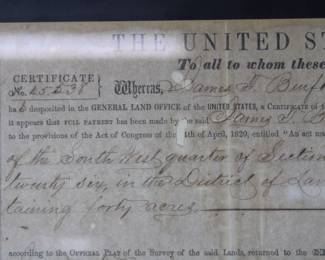 THE UNITED ST
To all to whom these
CERTIFICATE
No. 25238
Whereas, James T.
ha deposited in the GENERAL LAND OFFICE of the UNITED STATES, a Certificate of
it appears that FULL PAYMENT has been made by the said James T. B
to the provisions of the Act of Congress of the 24th of April, 1820, entitled "An act ma
of the South West quarter of Section
twenty six, in the District of Lan
taining forty acres
according to the OFFICIAL PLAT of the Survey of the said Lands, returned to the GE